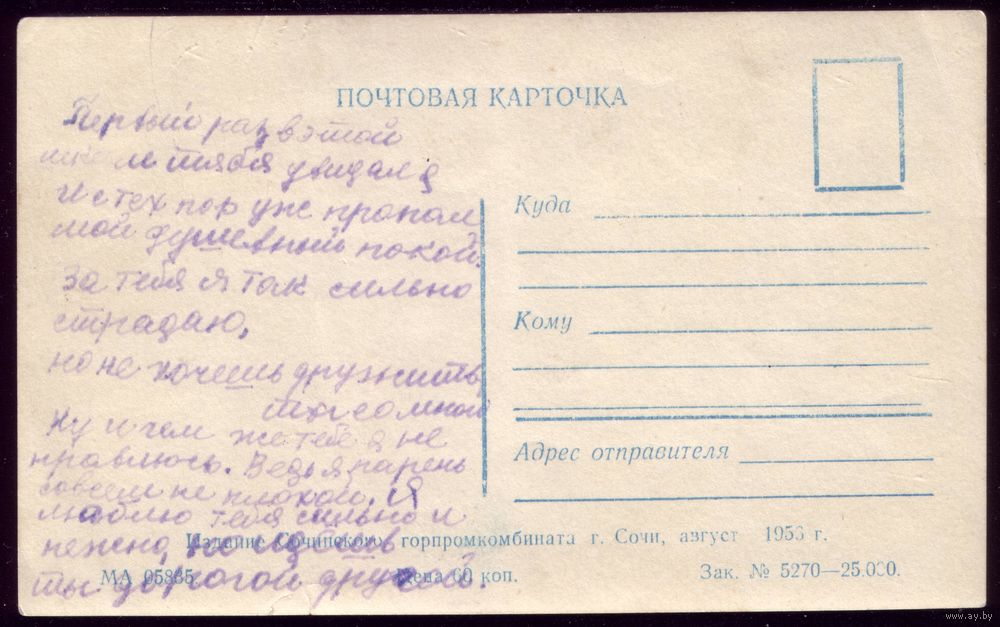 ПОЧТОВАЯ КАРТОЧКА
Первый раз в этой
школе тябя увидал я
И с тех пор уж пропал
мой душевный покой.
За тебя я так сильно
страдаю,
но не хочешь дружить
ты со мной
Ну и чем же тебе я не
нравлюсь. Ведь я парень
совсем не плохой. Я
люблю тебя сильно и
нежно, но идешь
ты дорогой другой.
Куда
Кому
Адрес отправителя
Издание Сочинского горпромкомбината г. Сочи, август 1956 г.
МА 05835 Цена 60 коп. Зак. № 5270—25.000.
www.ay.by